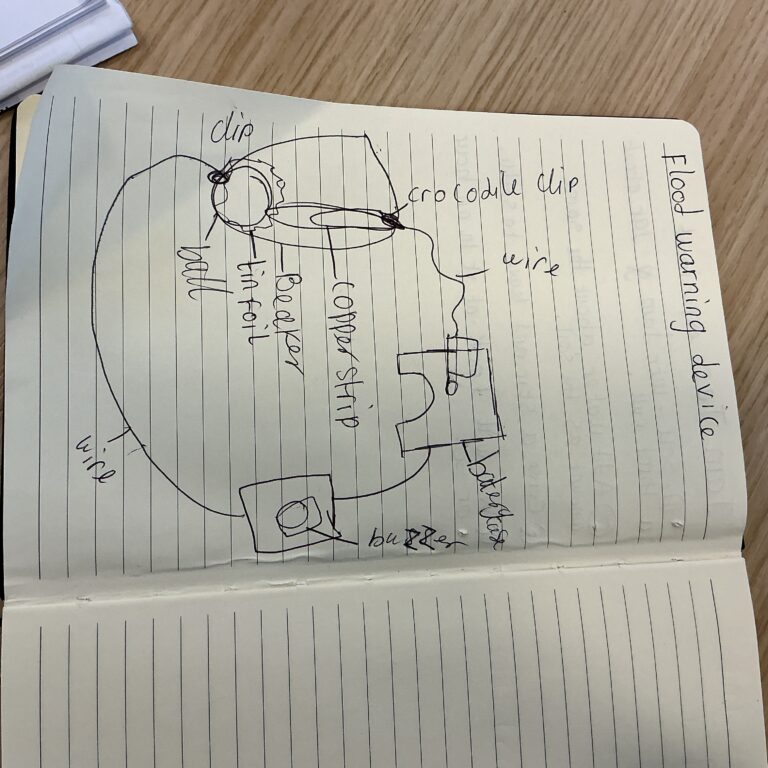 Flood warning device
clip
crocodile clip
wire
ball
tin foil
Beaker
copper strip
wire
buzzer